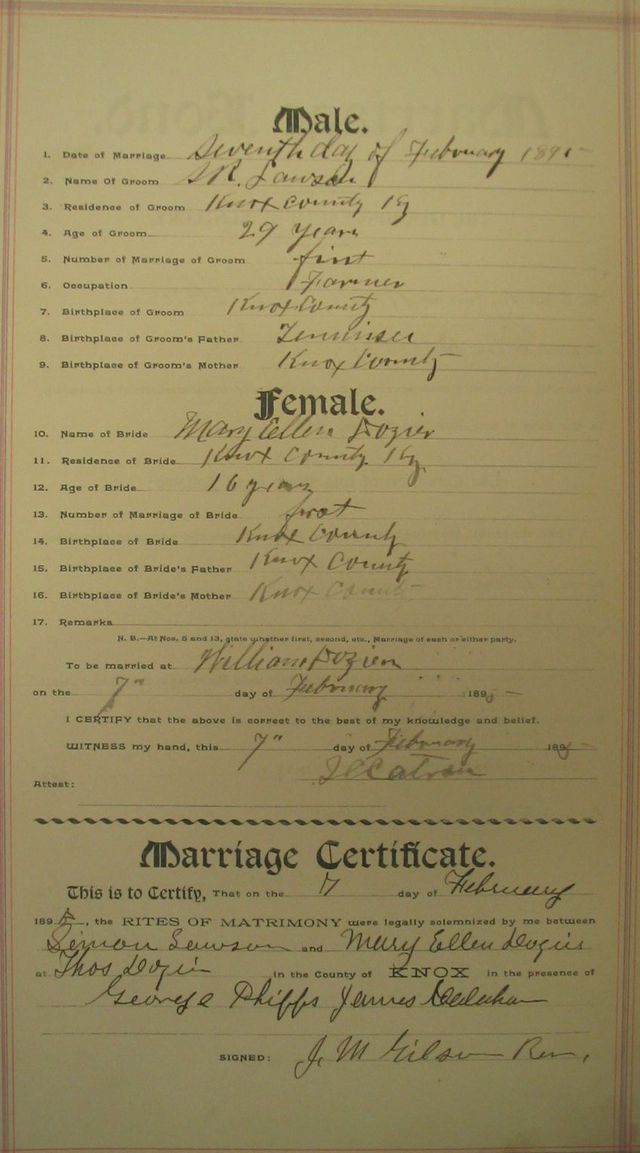 Male.
1. Date of Marriage Seventh day of February 189
2. Name Of Groom S R. Lawson
3. Residence of Groom Knox County Ky
4. Age of Groom 29 years
5. Number of Marriage of Groom first
6. Occupation Farmer
7. Birthplace of Groom Knox County
8. Birthplace of Groom's Father Tennissee
9. Birthplace of Groom's Mother Knox County
Female.
10. Name of Bride Mary Ellen Dozier
11. Residence of Bride Knox County Ky
12. Age of Bride 16 years
13. Number of Marriage of Bride first
14. Birthplace of Bride Knox County
15. Birthplace of Bride's Father Knox County
16. Birthplace of Bride's Mother Knox County
17. Remarks
N. B.—At Nos. 5 and 13, state whether first, second, etc., Marriage of each or either party.
To be married at William Dozier
on the 7" day of February 189
I CERTIFY that the above is correct to the best of my knowledge and belief.
WITNESS my hand, this 7" day of February 189
Catron
Attest:
Marriage Certificate.
This is to Certify, That on the 7 day of February
1895, the RITES OF MATRIMONY were legally solemnized by me between
Simon Lawson and Mary Ellen Dozier
at Thos Dozier in the County of KNOX in the presence of
George Phipps James
SIGNED: J. M Gilson Rev,